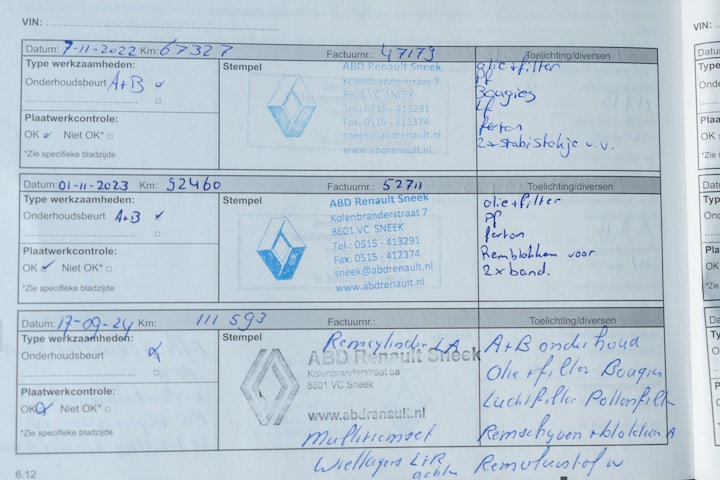 VIN:
Datum: 7-11-2022 Km: 67327 Factuurnr.: 47179
Type werkzaamheden: Stempel Toelichting/diversen
Onderhoudsbeurt A+B
Plaatwerkcontrole:
OK Niet OK*
*Zie specifieke bladzijde
ABD Renault Sneek
Kolenbranderstraat 7
8601 VC SNEEK
Tel.: 0515 - 413291
Fax: 0515 - 412374
sneek@abdrenault.nl
www.abdrenault.nl
olie+filter
pf
Bougies
Lf
ferton
2x stabistokje v.v.
Datum: 01-11-2023 Km: 92460 Factuurnr.: 52711
Type werkzaamheden: Stempel Toelichting/diversen
Onderhoudsbeurt A+B
Plaatwerkcontrole:
OK Niet OK*
*Zie specifieke bladzijde
ABD Renault Sneek
Kolenbranderstraat 7
8601 VC SNEEK
Tel.: 0515 - 413291
Fax: 0515 - 412374
sneek@abdrenault.nl
www.abdrenault.nl
olie+filter
pf
ferton
Remblokken voor
2x band.
Datum: 17-09-24 Km: 111 593 Factuurnr.: Toelichting/diversen
Type werkzaamheden: Stempel
Onderhoudsbeurt
Plaatwerkcontrole:
OK Niet OK*
*Zie specifieke bladzijde
Remcylinder LA
ABD Renault Sneek
Kolenbranderstraat
8601 VC Sneek
www.abdrenault.nl
Multiriemset
Wiellagers L+R
achter
A+B onderhoud
Olie+filter Bougies
Luchtfilter Pollenfilter
Remschyven+blokken A
Remvloeistof
6.12
VIN: